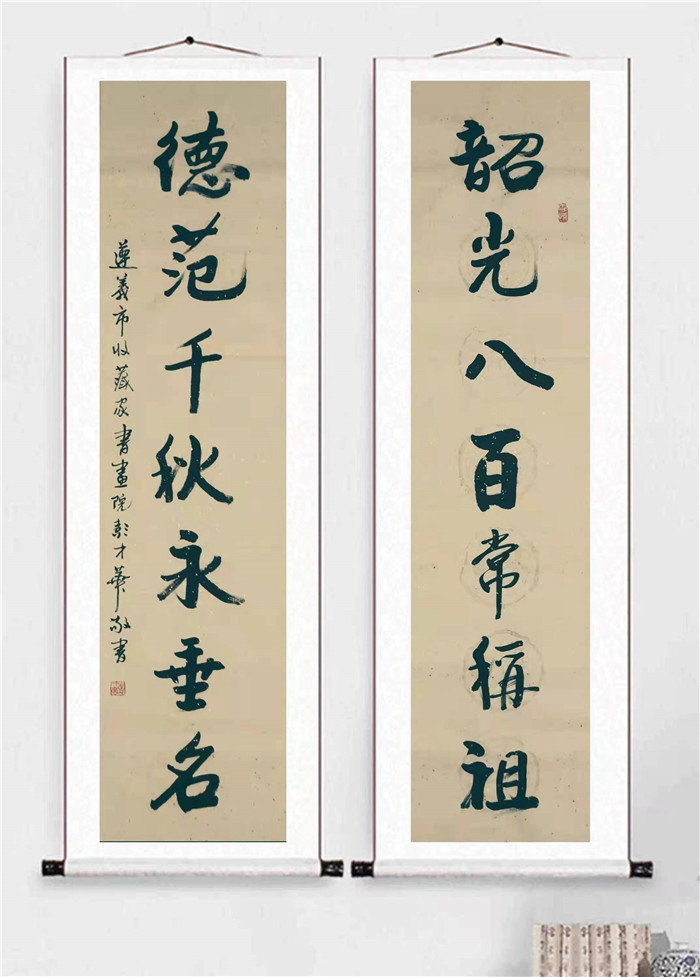 韶光八百常稱祖
德范千秋永垂名
遵義市收藏家書畫院彭才華敬書